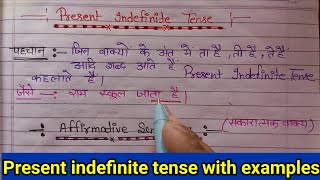 Present Indefinite Tense
पहचान :- जिन वाक्यो के अंत मे ता है, ती है, ते है
आदि शब्द आते है Present Indefinite Tense
कहलाते है।
जैसे —: राम स्कूल जाता है।
—: Affirmative Sen
(सकारात्मक वाक्य)
Present indefinite tense with examples